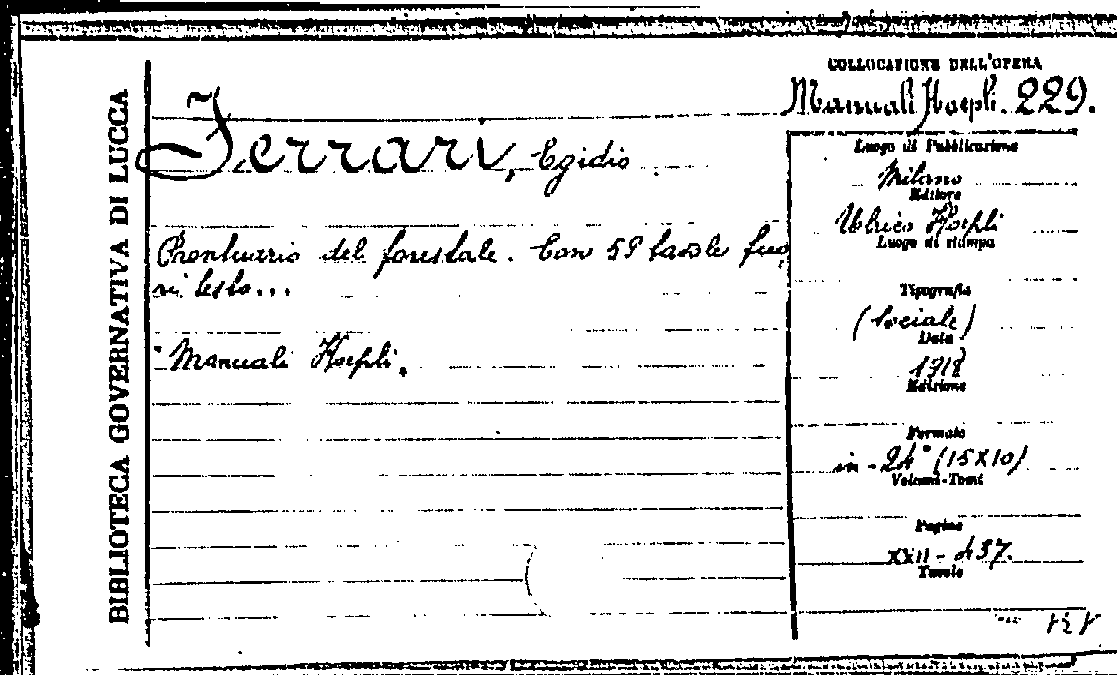 BIBLIOTECA GOVERNATIVA DI LUCCA
COLLOCAZIONE DELL'OPERA
Manuali Hoepli. 229.
Ferrari, Egidio
Prontuario del forestale. Con 58 tavole fuo
ri testo...
Manuali Hoepli.
Luogo di Pubblicazione
Milano
Editore
Ulrico Hoepli
Luogo di stampa
Tipografia
(Sociale)
Data
1918
Edizione
Formato
in-24° (15X10)
Volumi-Tomi
Pagine
XXII-437.
Tavole